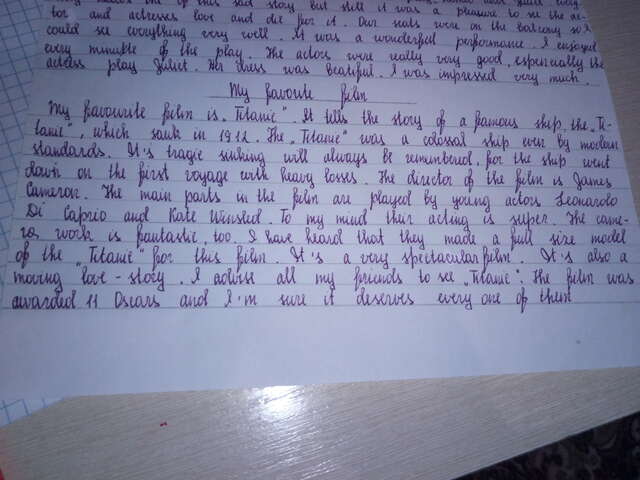 of this sad story but still it was a pleasure to see the ac-
tor and actresses love and die for it. Our seats were on the balcony so I
could see everything very well. It was a wonderful performance. I enjoyed
every minute of the play. The actors were really very good, especially the
actress play Juliet. Her dress was beatiful. I was impressed very much.
My favorite film
My favourite film is „Titanic". It tells the story of a famous ship the „Ti-
tanic", which sank in 1912. The „Titanic" was a colossal ship even by modern
standards. It's tragic sinking will always be remembered, for the ship went
down on the first voyage with heavy losses. The director of the film is James
Cameron. The main parts in the film are played by young actors Leonardo
Di Caprio and Kate Winslet. To my mind their acting is super. The came-
ra work is fantastic, too. I have heard that they made a full size model
of the „Titanic" for this film. It's a very spectacular film. It's also a
moving love-story. I advise all my friends to see „Titanic". The film was
awarded 11 Oscars and I'm sure it deserves every one of them